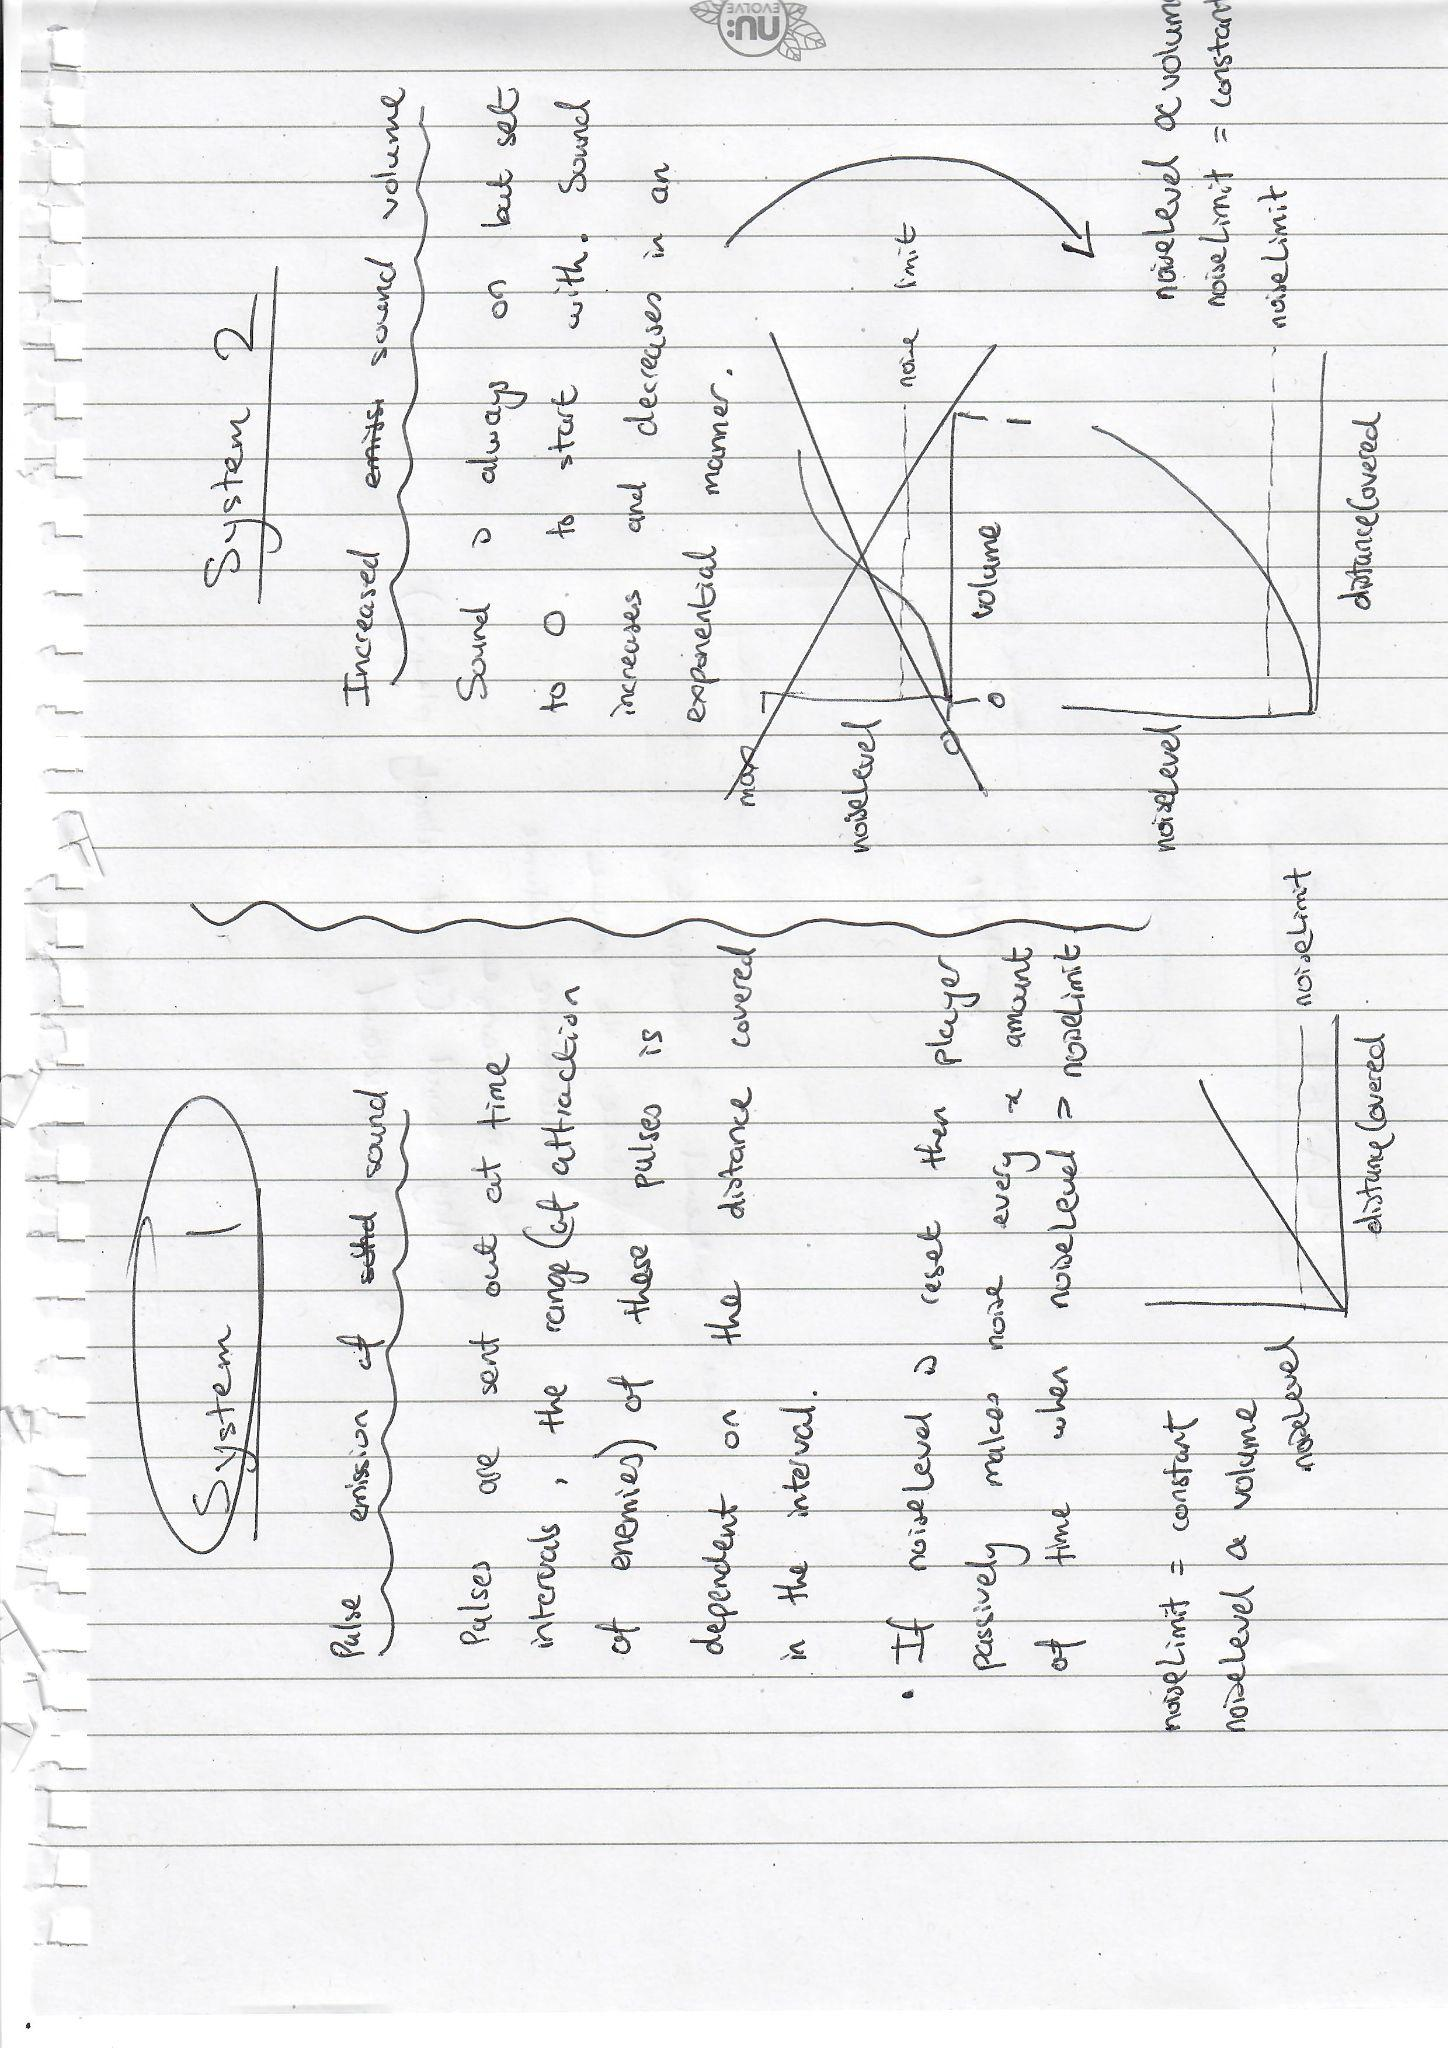 System 1
Pulse emission of sound
Pulses are sent out at time
intervals, the range (of attraction
of enemies) of these pulses is
dependent on the distance covered
in the interval.
• If noiseLevel is reset then player
passively makes noise every x amount
of time when noiseLevel > noiseLimit
noiseLimit = constant
noiseLevel α volume
noiseLevel
noiseLimit
distanceCovered
System 2
Increased sound volume
Sound is always on but set
to 0 to start with. Sound
increases and decreases in an
exponential manner.
max
noiseLevel
noise limit
0
0
1
volume
noiseLevel
noiseLevel α volum
noiseLimit = constant
noiseLimit
distanceCovered
nu:
EVOLVE